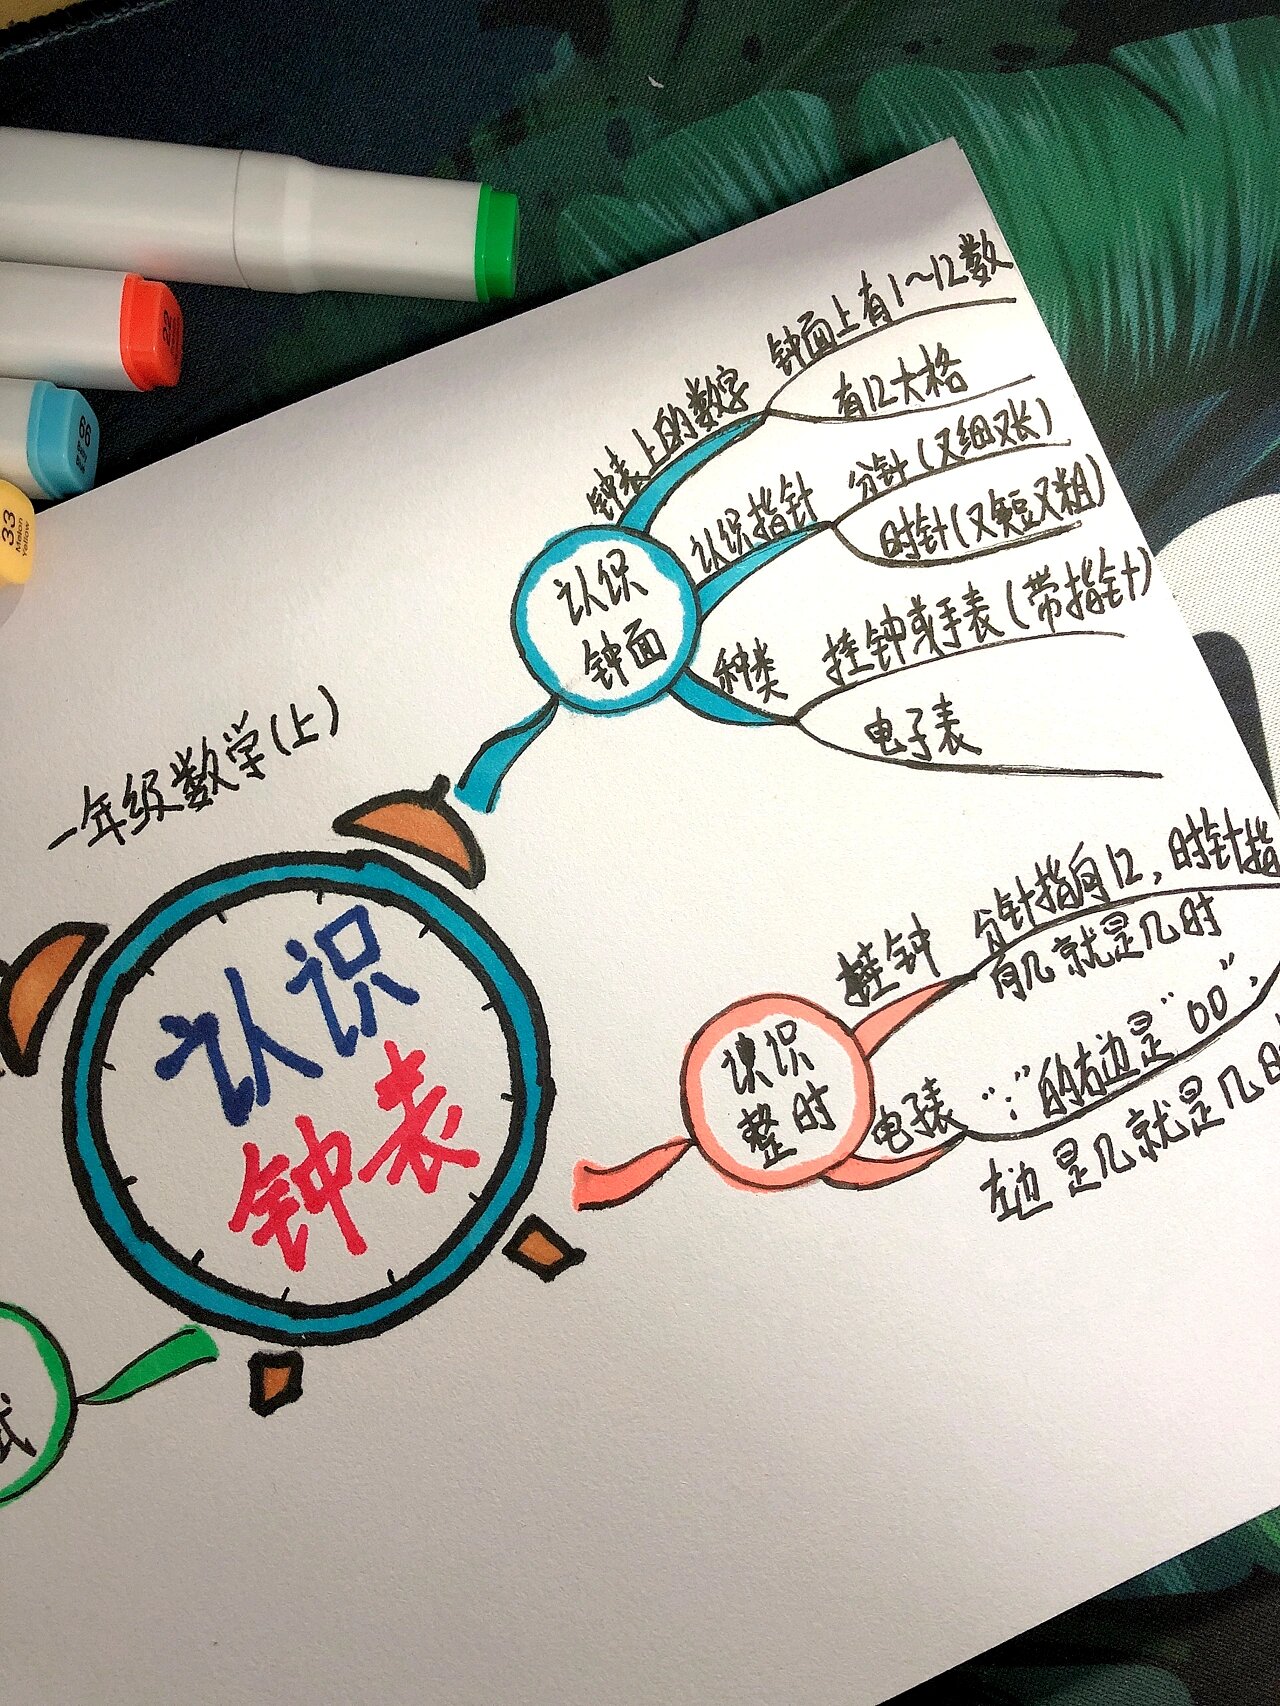 一年级数学(上)
认识
钟表
认识
钟面
钟表上的数字
钟面上有1~12数
有12大格
认识指针
分针(又细又长)
时针(又短又粗)
种类
挂钟或手表(带指针)
电子表
识识
整时
挂钟
分针指向12,时针指
向几就是几时
电子表
":"的右边是"00",
左边是几就是几时
式
66
33
Melon
Yellow